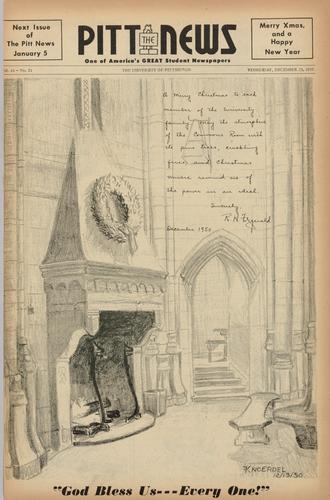 Next Issue
of
The Pitt News
January 5
PITT THE NEWS
One of America's GREAT Student Newspapers
Merry Xmas,
and a
Happy
New Year
THE UNIVERSITY OF PITTSBURGH
WEDNESDAY, DECEMBER
A Merry Christmas to each
member of the University
family. May the atmosphere
of the Commons Room with
its pine trees, crackling
fires and Christmas
music remind us of
the power in an ideal.
Sincerely,
December 1950
KNOERDEL
12/13/50
"God Bless Us---Every One!"